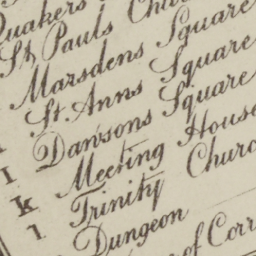 Quakers
St. Pauls Chur
Marsdens Square
St. Anns Square
Dawsons Square
i Meeting House
k Trinity Churc
l Dungeon
of Corr